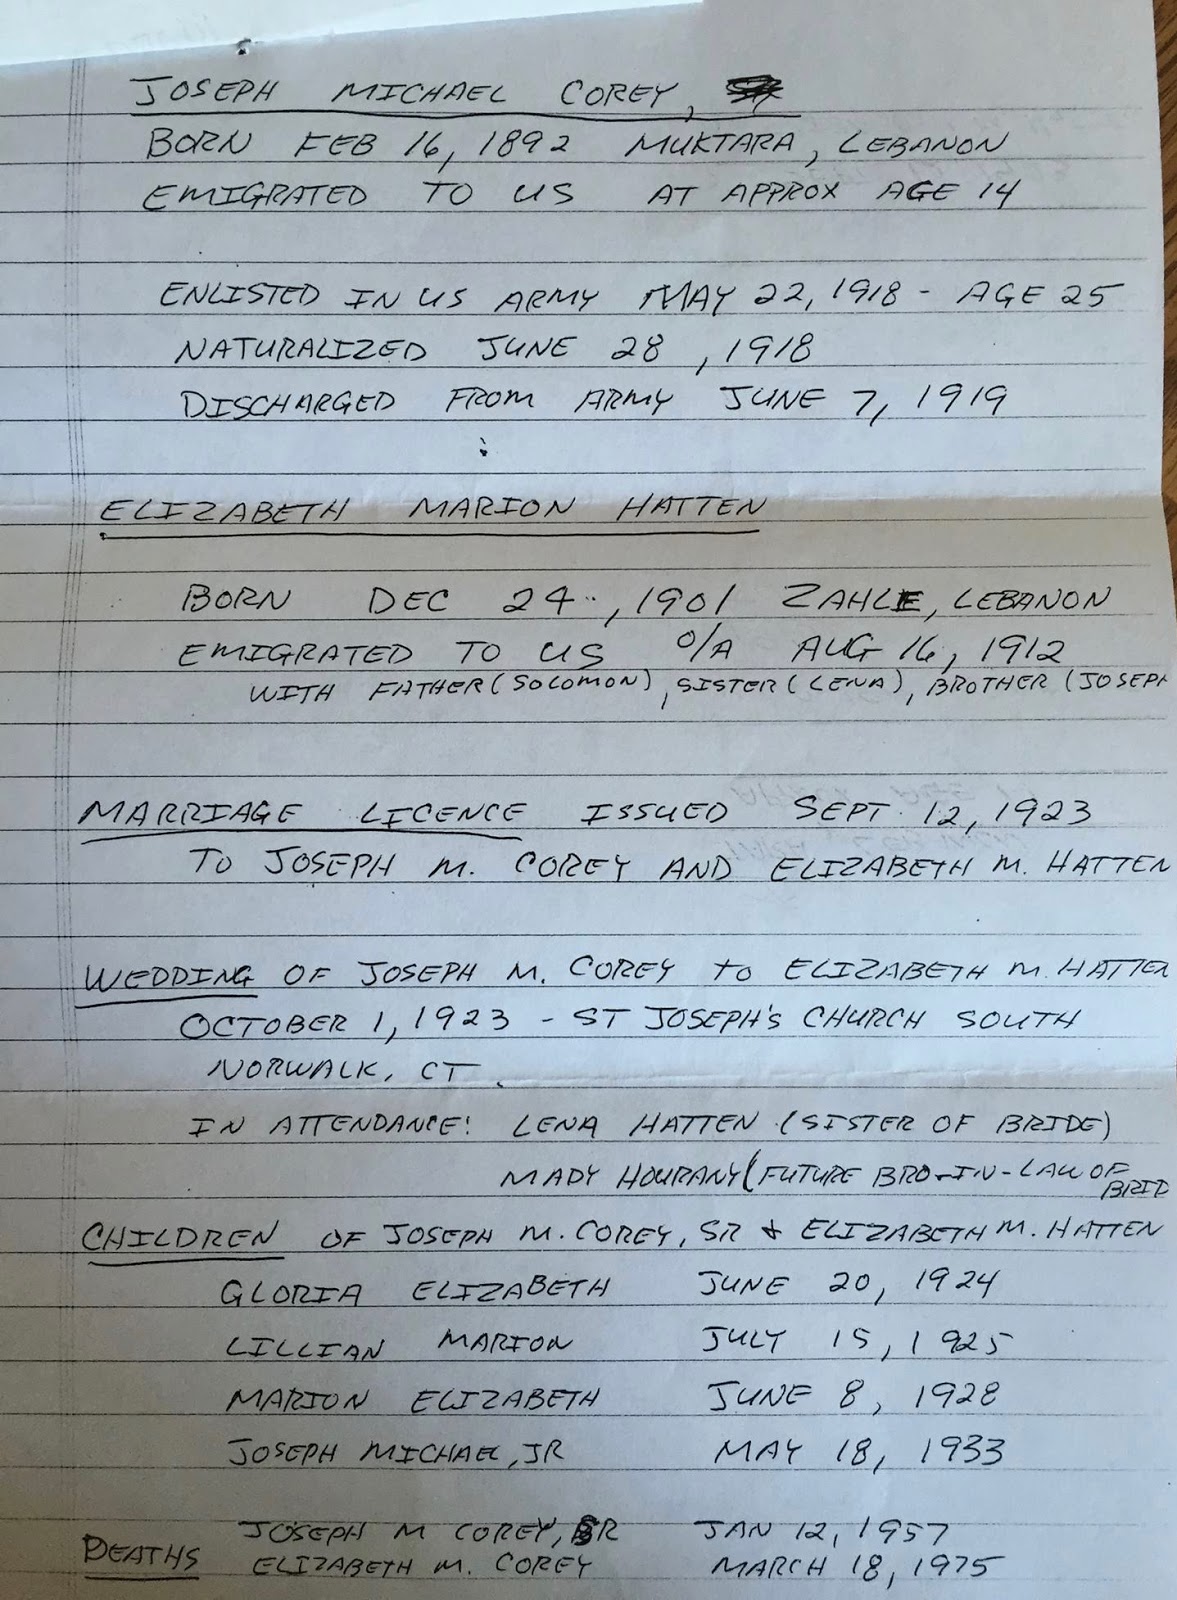 JOSEPH MICHAEL COREY,
BORN FEB 16, 1892 MUKTARA, LEBANON
EMIGRATED TO US AT APPROX AGE 14
ENLISTED IN US ARMY MAY 22, 1918 - AGE 25
NATURALIZED JUNE 28, 1918
DISCHARGED FROM ARMY JUNE 7, 1919
ELIZABETH MARION HATTEN
BORN DEC 24, 1901 ZAHLE, LEBANON
EMIGRATED TO US O/A AUG 16, 1912
WITH FATHER (SOLOMON), SISTER (LENA), BROTHER (JOSEPH
MARRIAGE LICENCE ISSUED SEPT. 12, 1923
TO JOSEPH M. COREY AND ELIZABETH M. HATTEN
WEDDING OF JOSEPH M. COREY TO ELIZABETH M. HATTEN
OCTOBER 1, 1923 - ST JOSEPH'S CHURCH SOUTH
NORWALK, CT.
IN ATTENDANCE: LENA HATTEN (SISTER OF BRIDE)
MADY HOURANY (FUTURE BRO-IN-LAW OF
BRID
CHILDREN OF JOSEPH M. COREY, SR & ELIZABETH M. HATTEN
GLORIA ELIZABETH JUNE 20, 1924
LILLIAN MARION JULY 15, 1925
MARION ELIZABETH JUNE 8, 1928
JOSEPH MICHAEL, JR MAY 18, 1933
JOSEPH M COREY, SR JAN 12, 1957
DEATHS ELIZABETH M. COREY MARCH 18, 1975